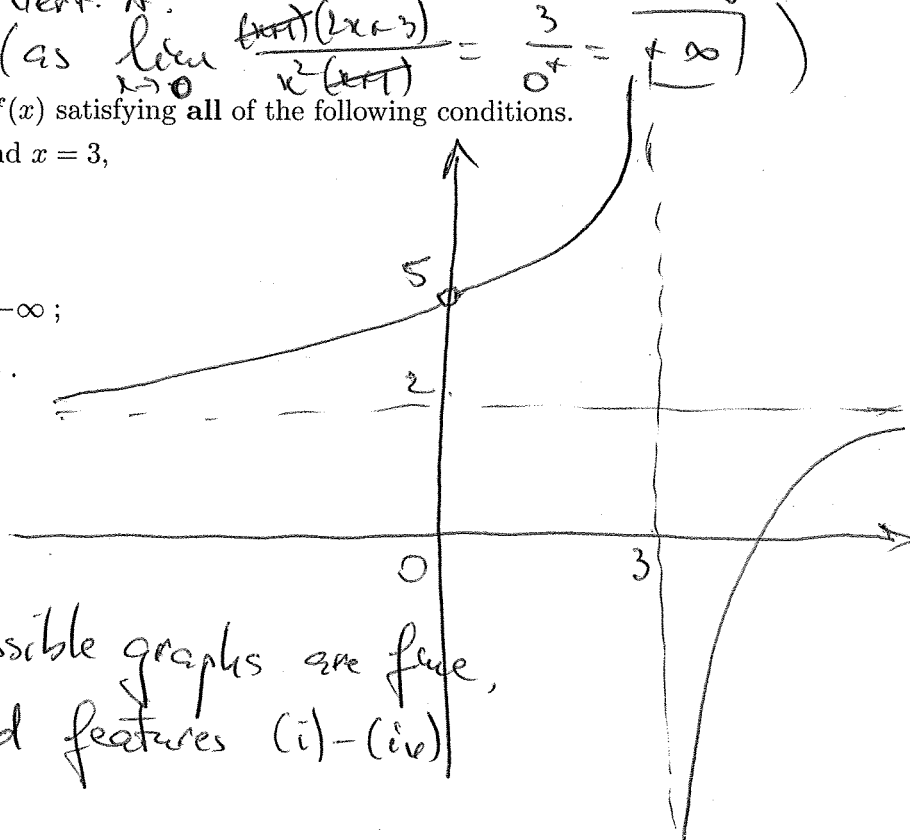 vert. A.
(as lim x→0 (x+1)(2x+3) / x²(x+1) = 3/0⁺ = +∞ )
f(x) satisfying all of the following conditions.
nd x = 3,
−∞ ;
.
5
2
0
3
ssible graphs are fine,
d features (i)-(iv)